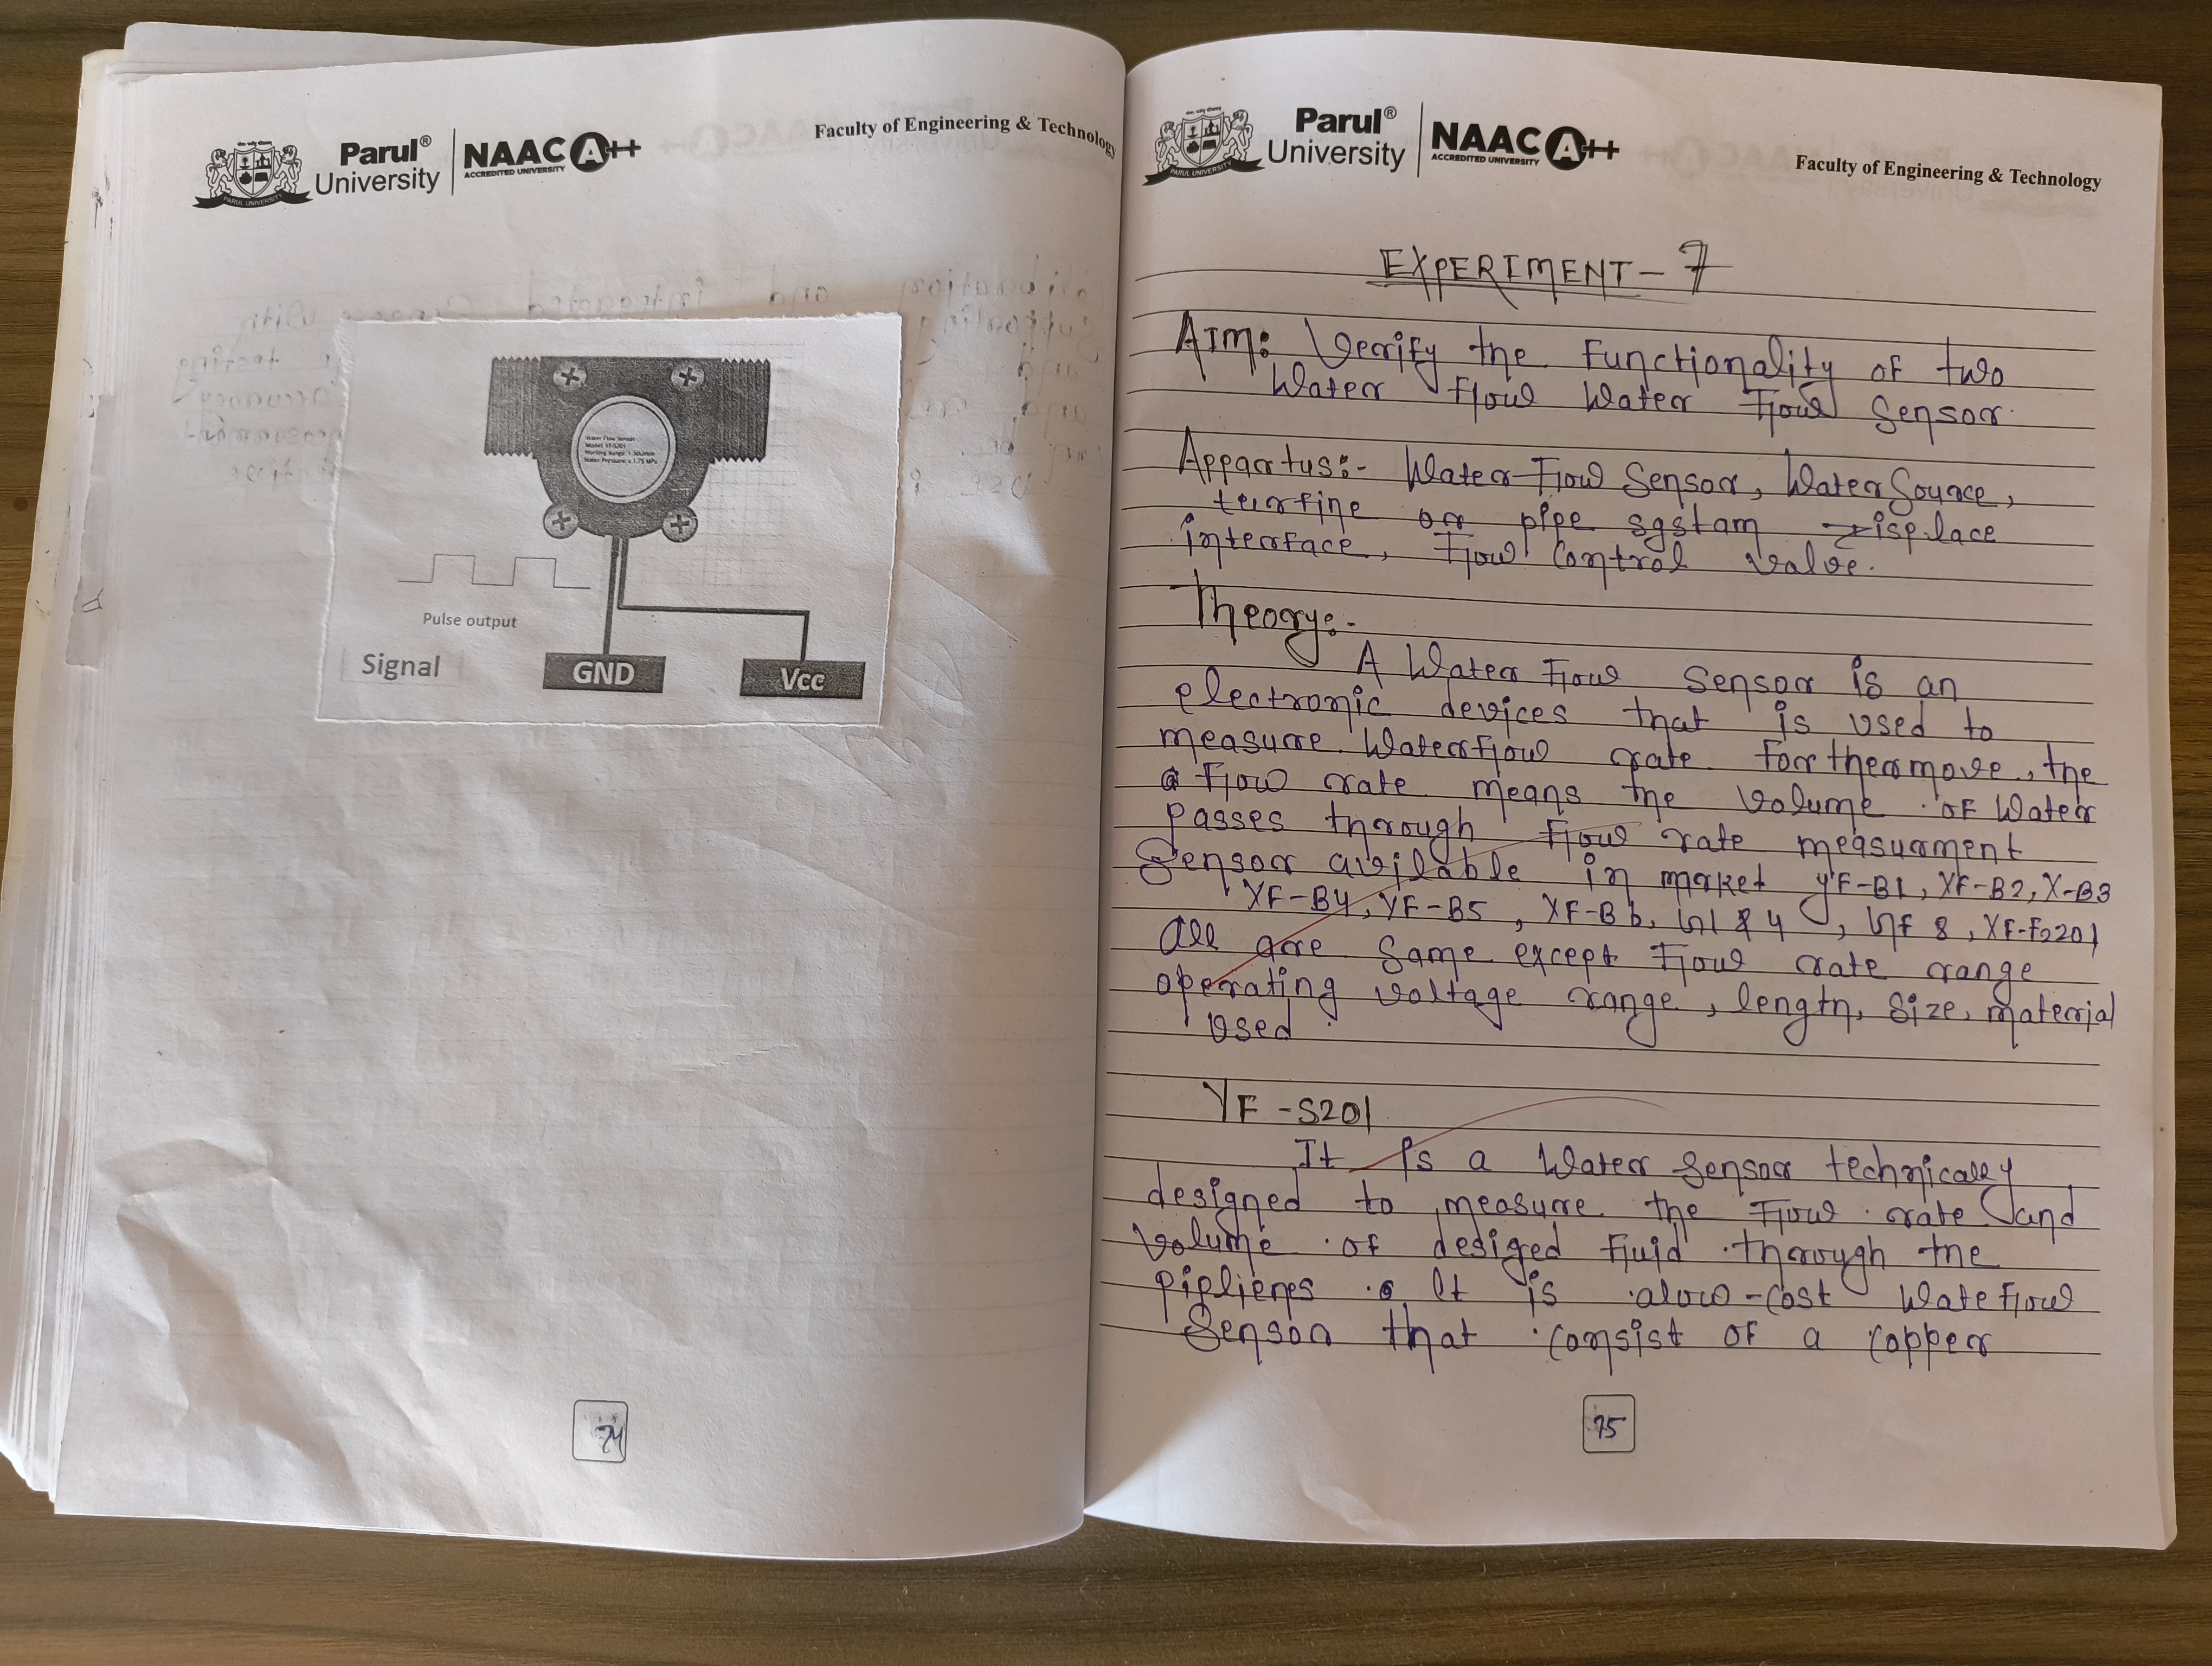 Parul®
University
NAAC A++
ACCREDITED UNIVERSITY
PARUL UNIVERSITY
Faculty of Engineering & Technology
Water Flow Sensor
Model: YF-S201
Working Range: 1-30L/min
Water Pressure: ≤ 1.75 MPa
Pulse output
Signal
GND
Vcc
74
Parul®
University
NAAC A++
ACCREDITED UNIVERSITY
PARUL UNIVERSITY
Faculty of Engineering & Technology
EXPERIMENT - 7
AIM: Verify the functionality of two
Water Flow Water Flow Sensor.
Appartus:- Water Flow Sensor, Water Source,
or pipe sgstam
interface, Flow Control valve.
Theory:-
A Water Flow Sensor is an
electronic devices that is used to
measure Waterflow rate. Forthermove, the
Flow rate means the volume of Water
passes through Flow rate measurment
Sensor avilable in market YF-B1, XF-B2, X-B3
XF-B4, YF-B5, XF-B6, XF-F2201
All are same except Flow rate range
operating voltage range, length, size, material
used.
YF-S201
It is a Water Sensor technicaley
designed to measure the Flow rate and
volume of desiged fluid through the
piplienes. It is alow-cost Wate Flow
Sensor that consist of a copper
75